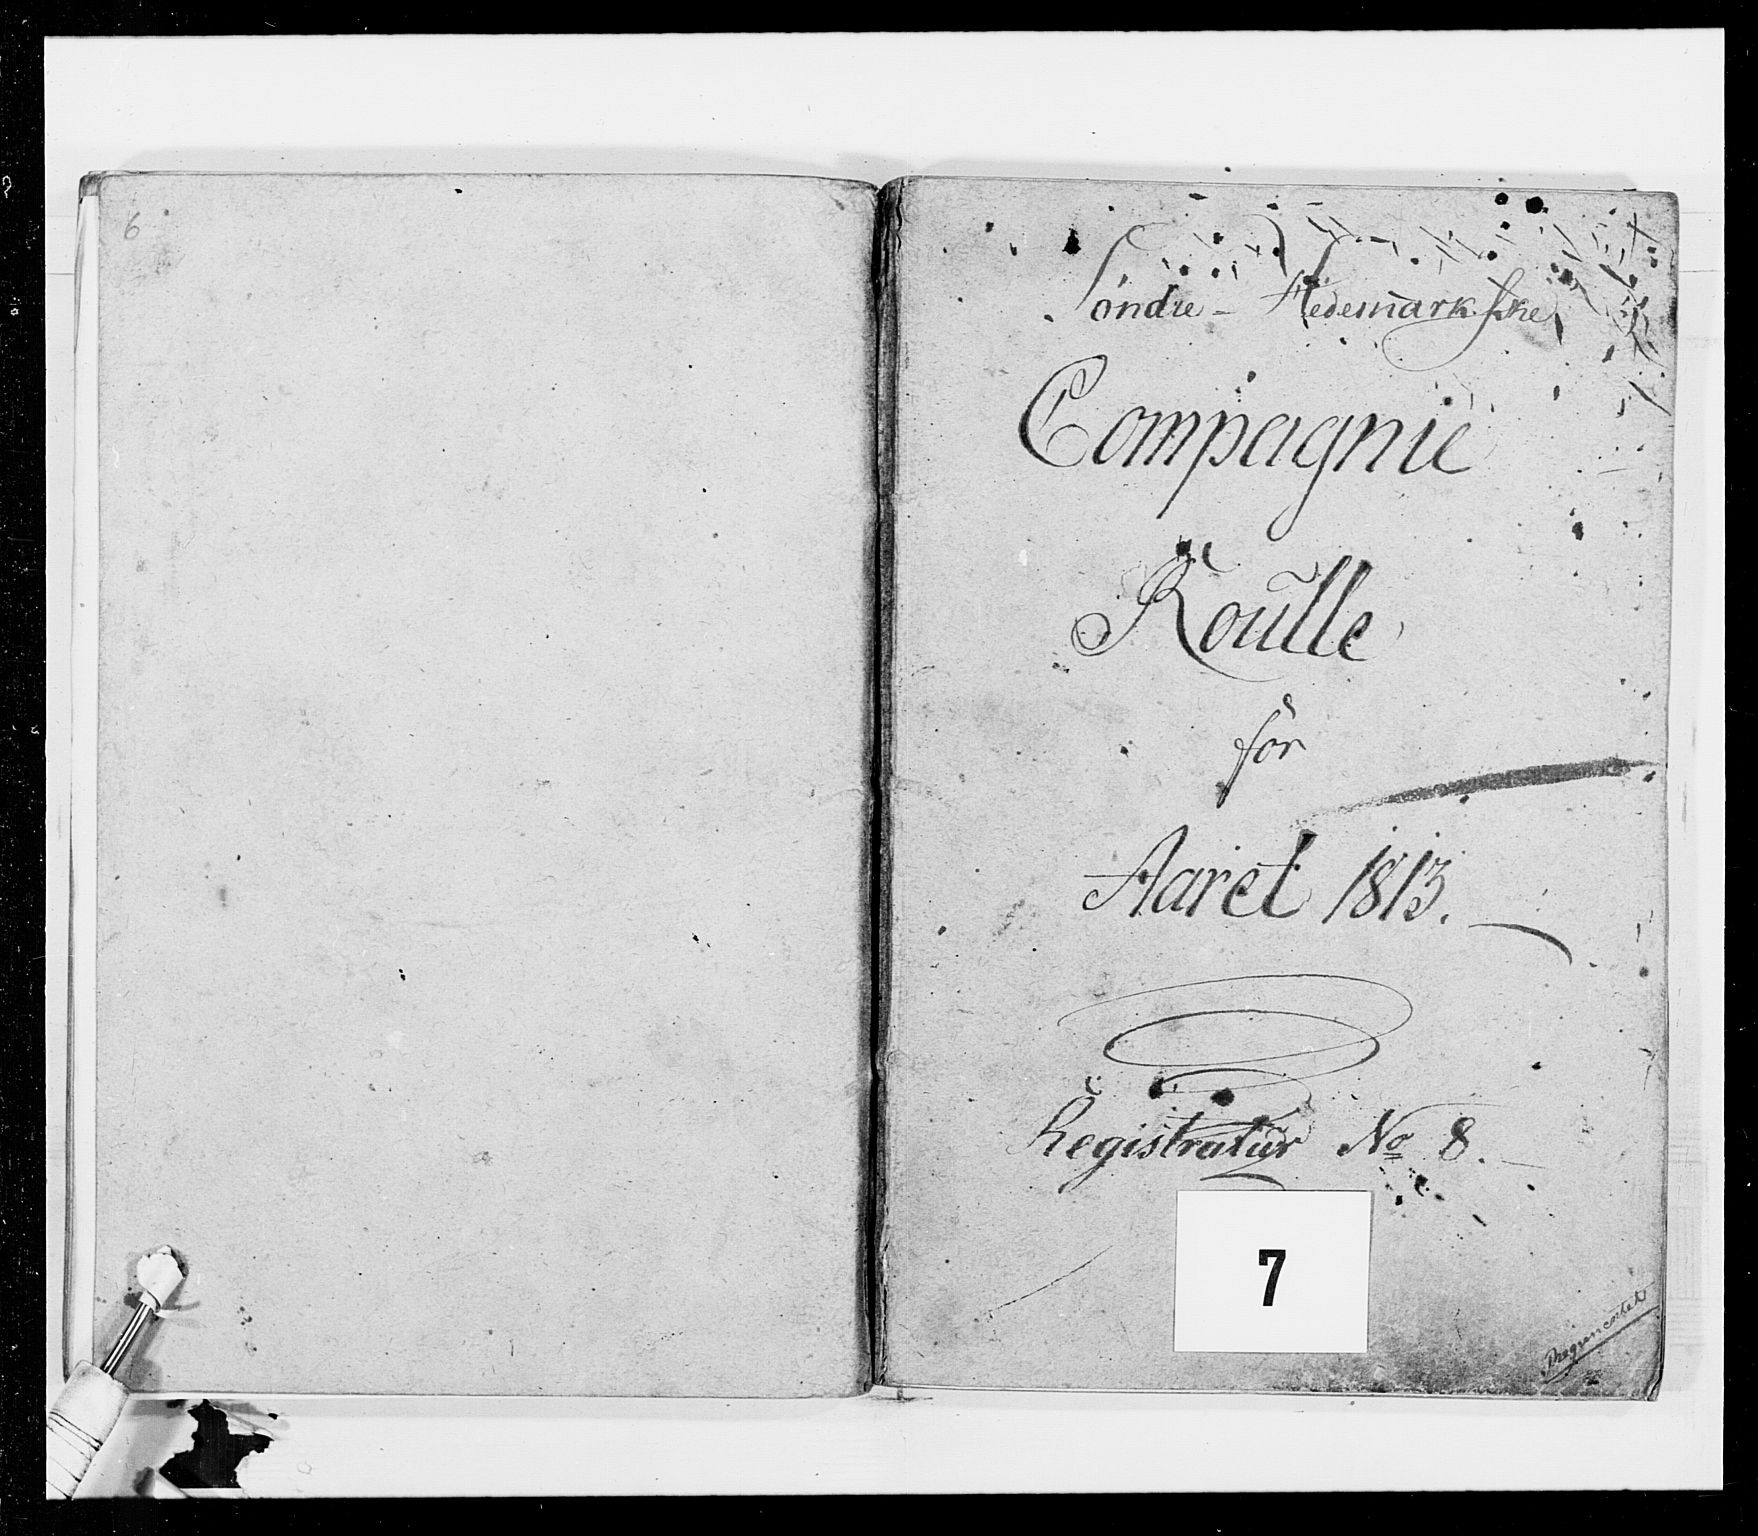 6
Söndre - Hedemarkske
Compagnie
Roulle
for
Aaret 1813.
Registratur No 8.
7